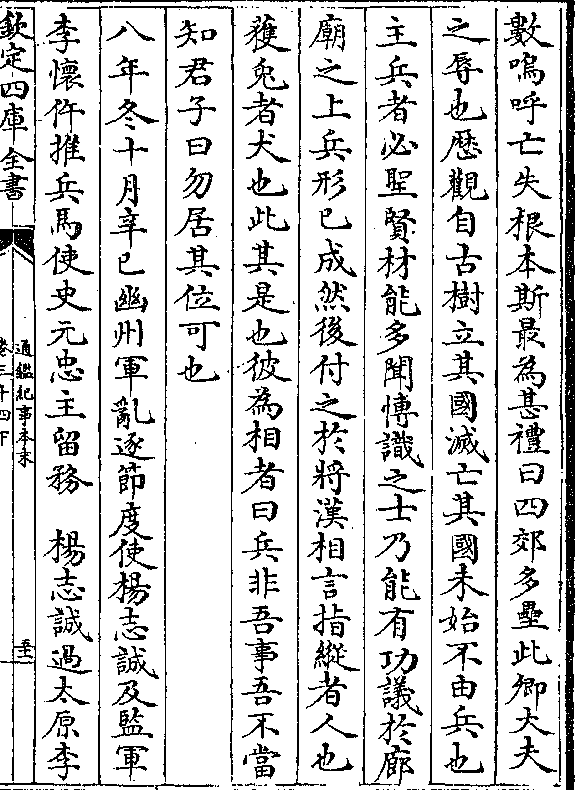 數嗚呼亡失根本斯最為甚禮曰四郊多壘此卿大夫
之辱也歷觀自古樹立其國滅亡其國未始不由兵也
主兵者必聖賢材能多聞博識之士乃能有功議於廊
廟之上兵形已成然後付之於將漢相言指縱者人也
獲兔者犬也此其是也彼為相者曰兵非吾事吾不當
知君子曰勿居其位可也
八年冬十月辛巳幽州軍亂逐節度使楊志誠及監軍
李懷仵推兵馬使史元忠主留務　楊志誠過太原李
欽定四庫全書
通鑑紀事本末
卷三十四下